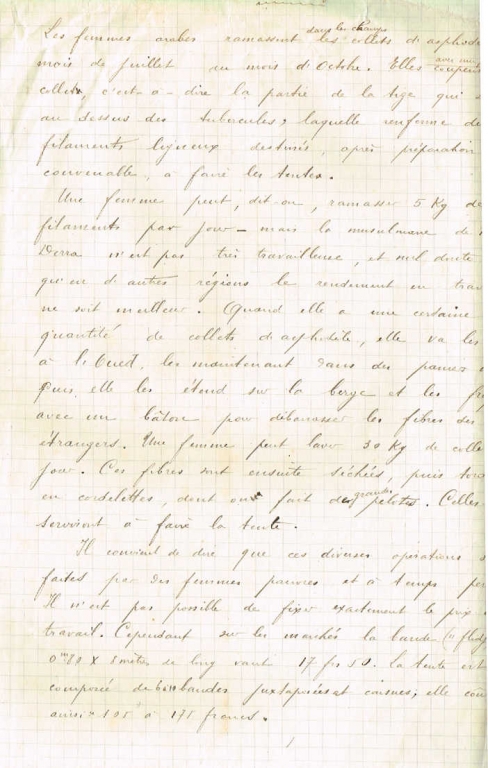 dans les champs
Les femmes arabes ramassent les collets d'asphod
mois de juillet au mois d'Octbre. Elles coupent
collets, c'est-à-dire la partie de la tige qui
au dessus des tubercules, laquelle renferme de
filaments ligneux destinés, après préparation
convenable, à faire les tentes.
Une femme peut, dit-on, ramasser 5 Kg de
filaments par jour - mais la musulmane de
Derra n'est pas très travailleuse, et nul doute
qu'en d'autres régions le rendement en trav
ne soit meilleur. Quand elle a une certaine
quantité de collets d'asphodèle, elle va les
à l'Oued, les maintenant dans des paniers
Puis elle les étend sur la berge et les fra
avec un bâton pour débarrasser les fibres des
étrangers. Une femme peut laver 30 Kg de colle
jour. Ces fibres sont ensuite séchées, puis tor
en cordelettes, dont on fait de grandes pelotes. Celles
serviront à faire la tente.
Il convient de dire que ces diverses opérations
faites par des femmes pauvres et à temps per
Il n'est pas possible de fixer exactement le prix
travail. Cependant sur les marchés la bande (flidj
0m80 X 8 mètres de long vaut 17 frs 50. La tente est
composée de bandes juxtaposées et cousues; elle coû
ainsi à 175 francs.